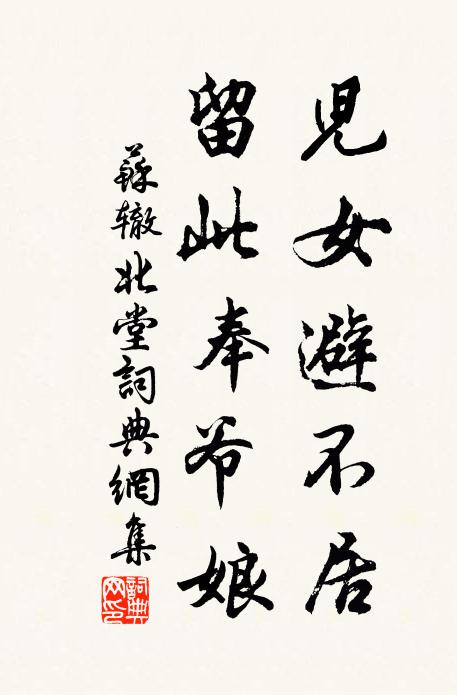 兒女避不居
留此奉爷娘
蘇辙北堂詞典網集
詞典
网印